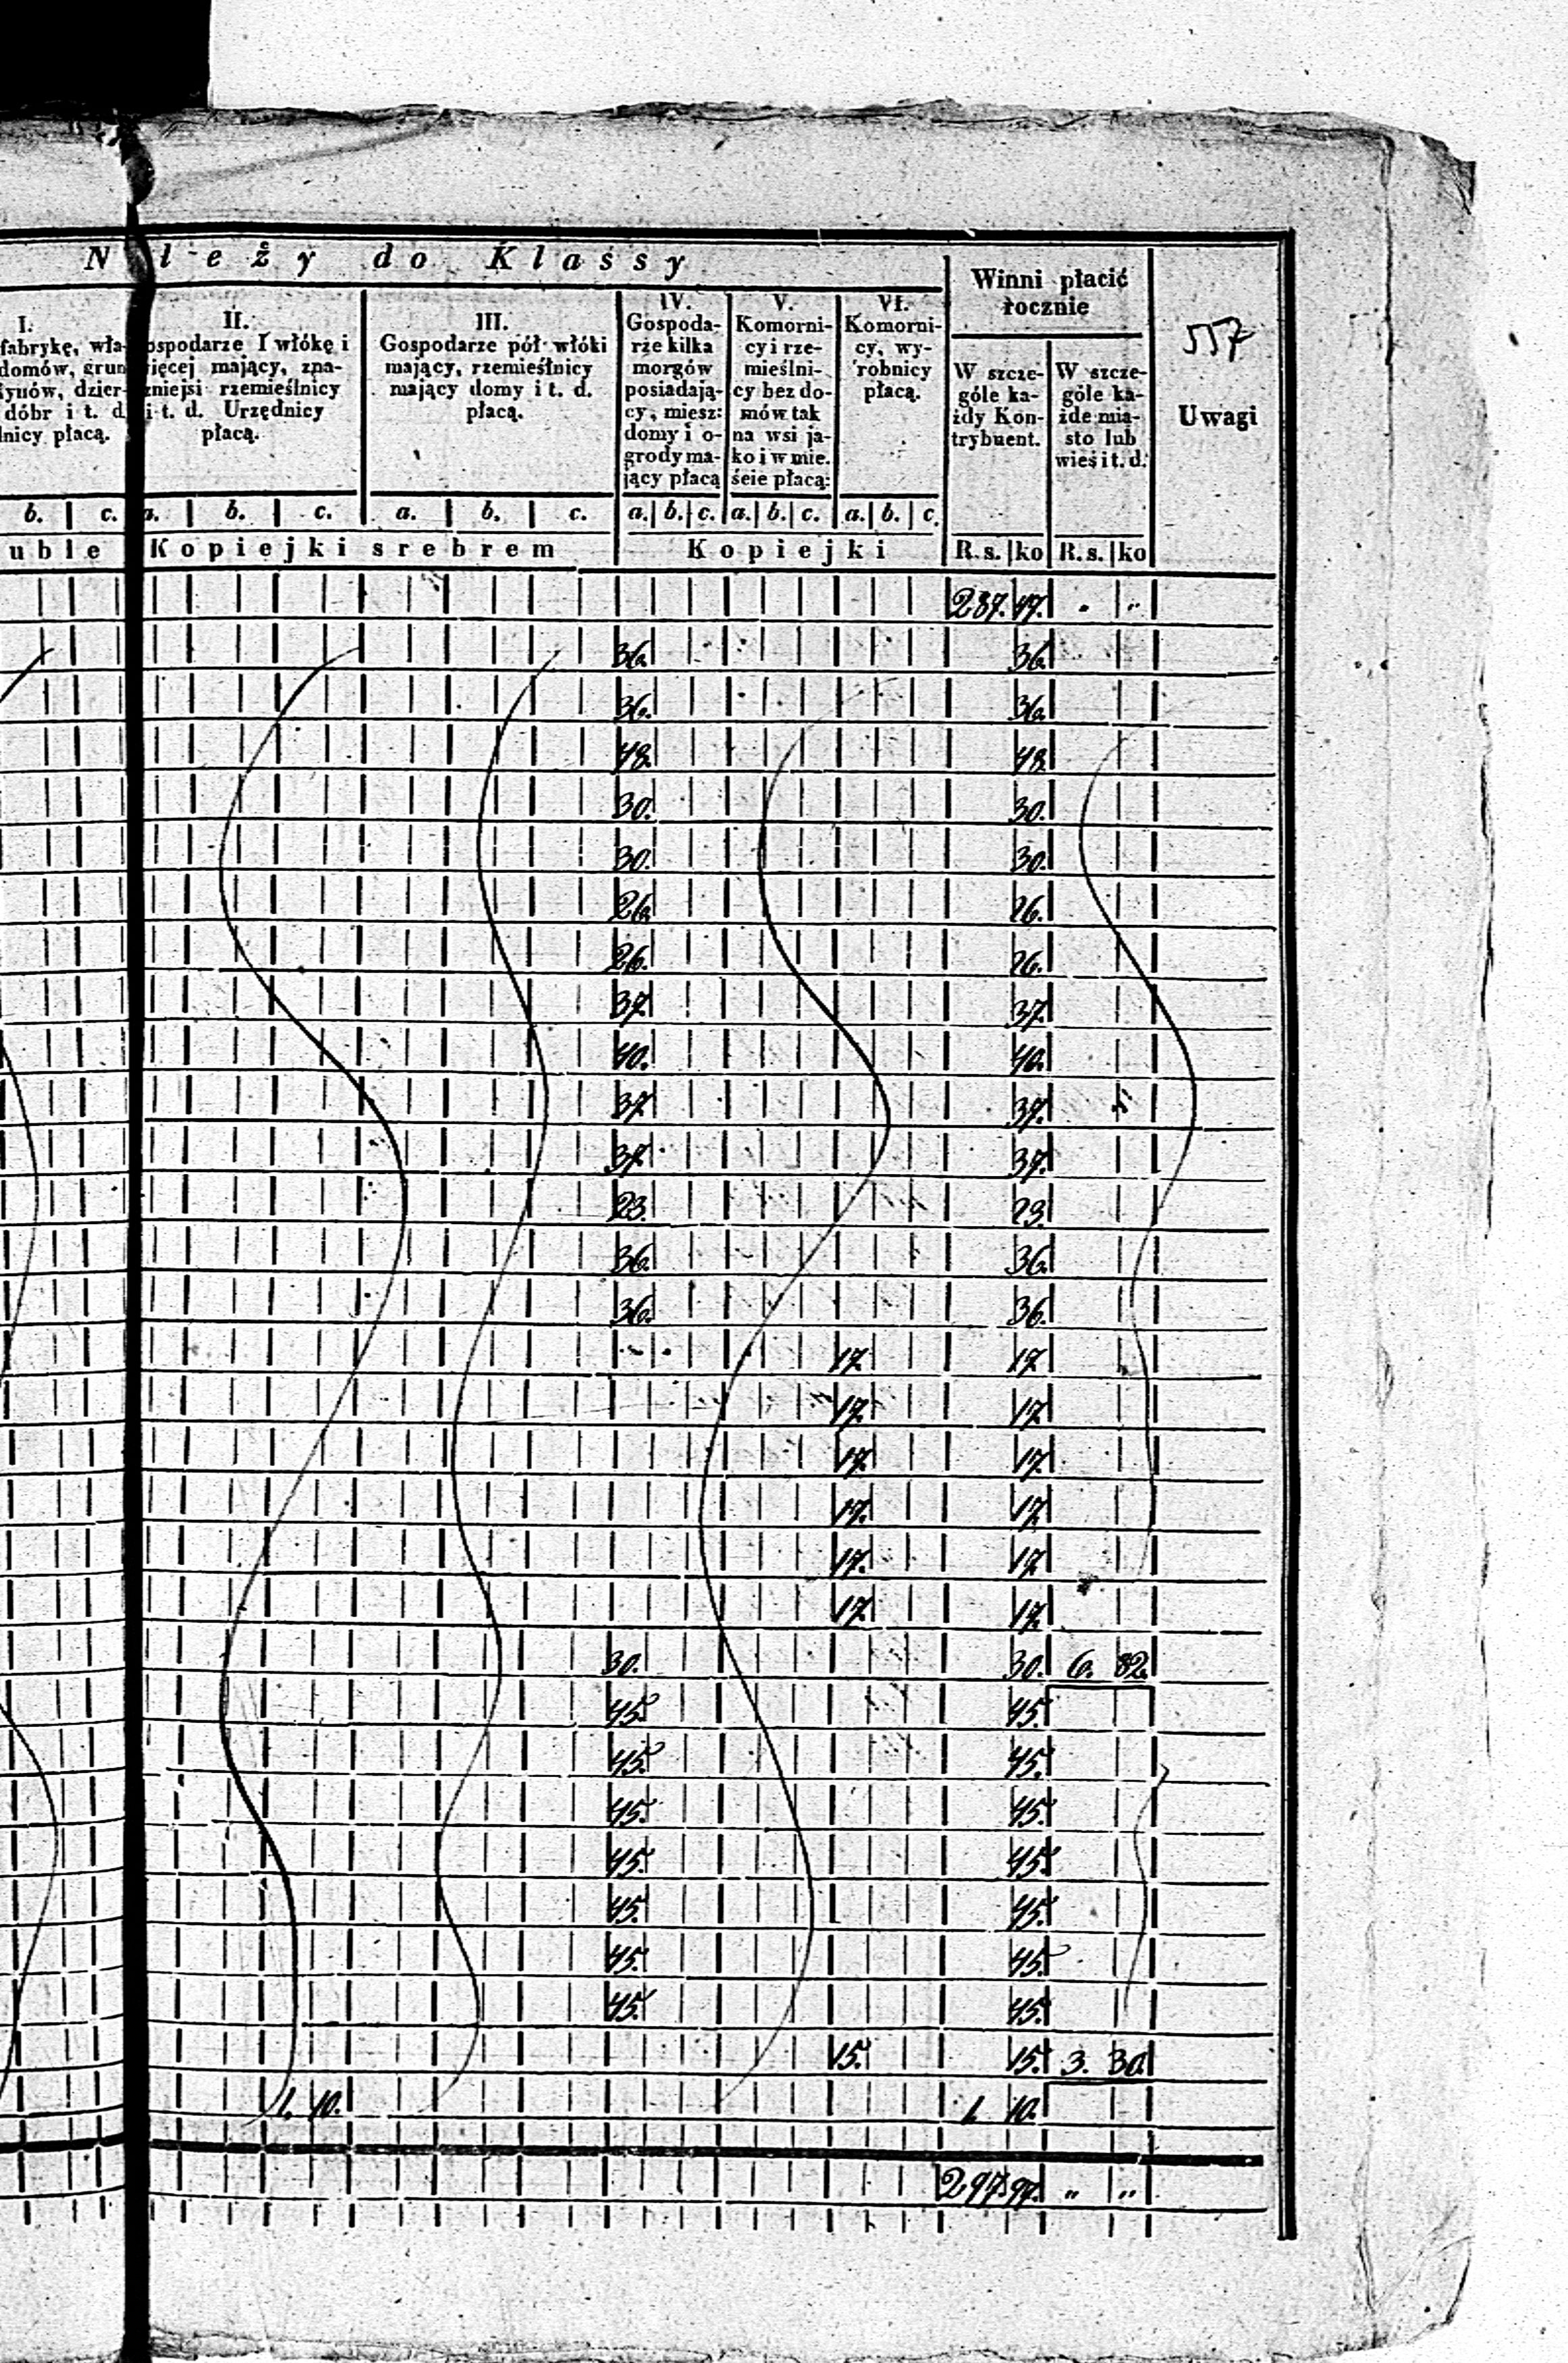 N leży do Klassy
Winni płacić
rocznie
557
Uwagi
I.
fabrykę, wła-
domów, grun
ynów, dzier-
dóbr i t. d.
nicy płacą.
II.
ospodarze 1 włókę i
ięcej mający, zna-
zniejsi rzemieślnicy
i t. d. Urzędnicy
płacą.
III.
Gospodarze pół włóki
mający, rzemieślnicy
mający domy i t. d.
płacą.
IV.
Gospoda-
rze kilka
morgów
posiadają-
cy, miesz:
domy i o-
grody ma-
jący płacą
V.
Komorni-
cy i rze-
mieślni-
cy bez do-
mów tak
na wsi ja-
ko i w mie.
ście płacą:
VI.
Komorni-
cy, wy-
robnicy
płacą.
W szcze-
góle ka-
żdy Kon-
trybuent.
W szcze-
góle ka-
żde mia-
sto lub
wieś i t. d.
b. c. a. b. c. a. b. c. a. b. c. a. b. c. a. b. c.
uble Kopiejki srebrem Kopiejki R.s. ko R.s. ko
237. 47. . "
36. 36.
36. 36.
48. 48.
30. 30.
30. 30.
26. 26.
26. 26.
37. 37.
40. 40.
37. 37.
37. 37.
23. 23.
36. 36.
36. 36.
17. 17.
17. 17.
17. 17.
17. 17.
17. 17.
17. 17.
30. 30. 6. 82.
45. 45.
45. 45.
45. 45.
45. 45.
45. 45.
45. 45.
45. 45.
15. 15. 3. 30.
1. 10. 1. 10.
297. " "